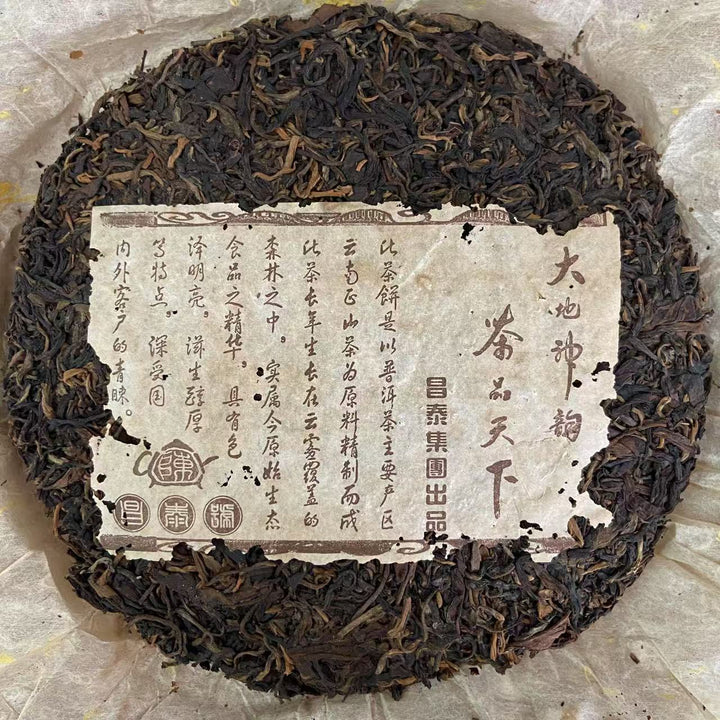 大地神韵
茶品天下
昌泰集團出品
此茶餅是以普洱茶主要产区
云南正山茶为原料精制而成
此茶长年生长在云雾覆盖的
森林之中。实属今原始生态
食品之精华。具有色
泽明亮。滋生醇厚
等特点。深受国
内外客户的青睐。
陳
昌泰號